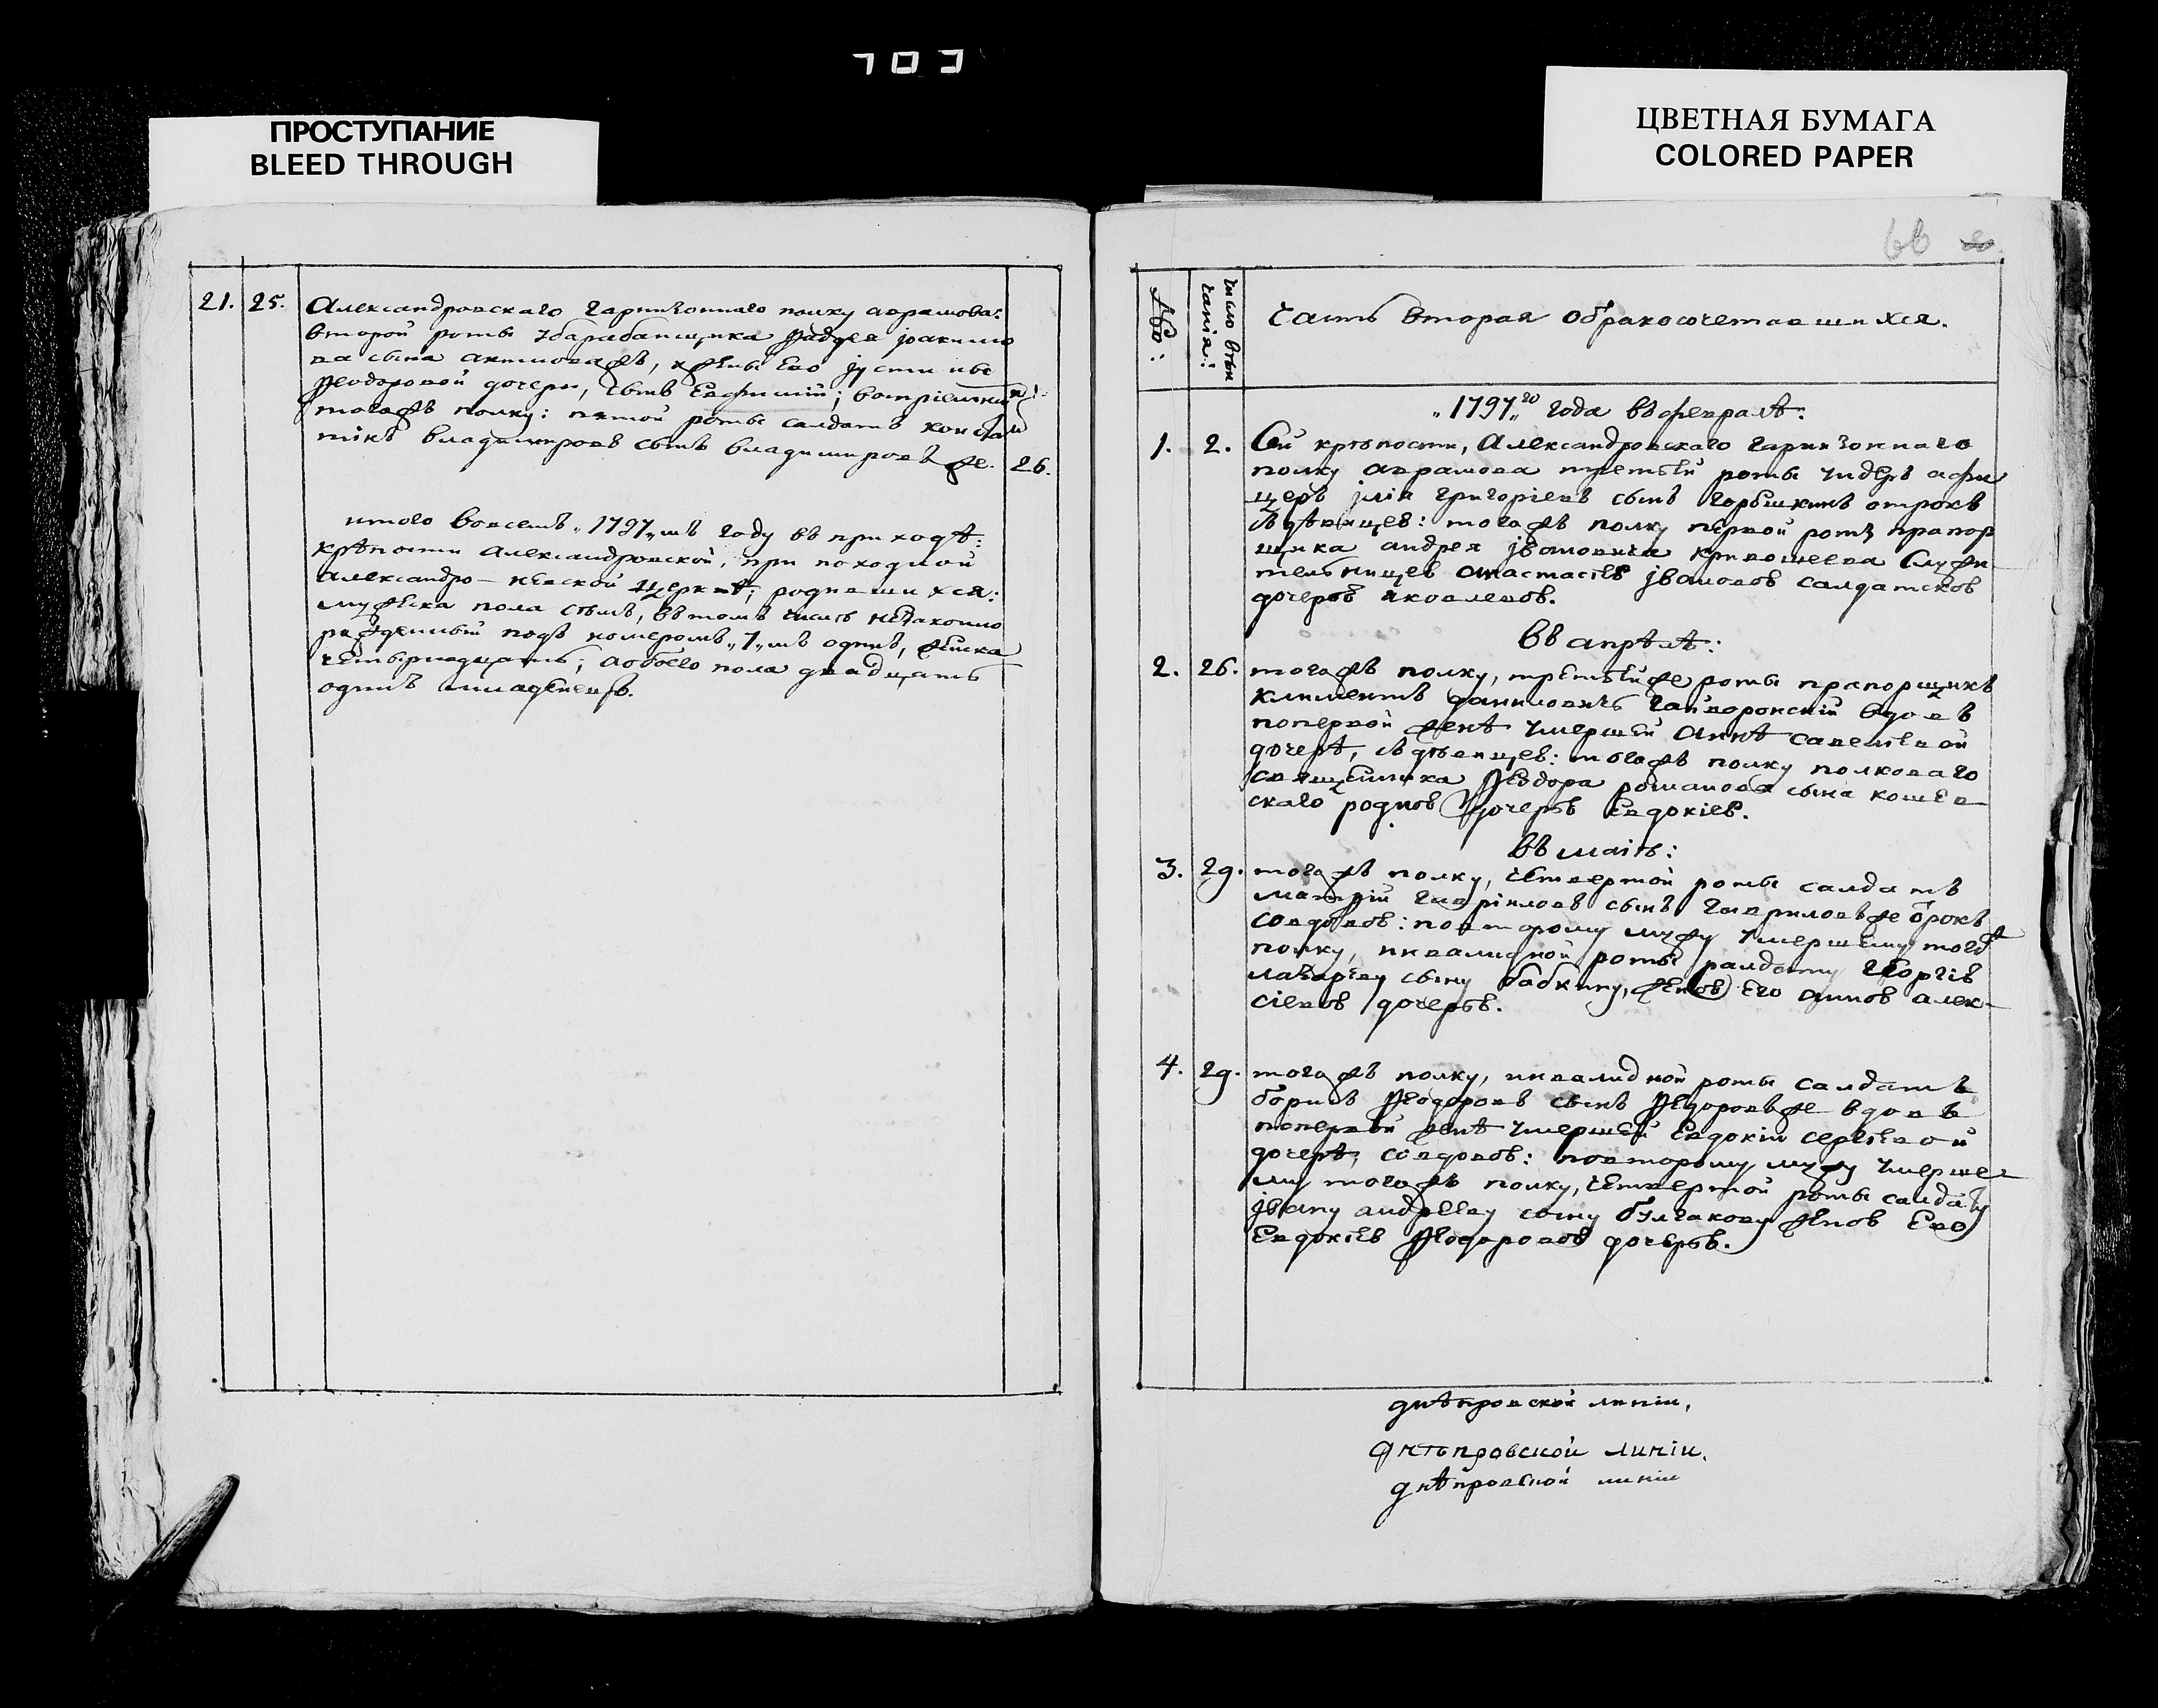 ПРОСТУПАНИЕ
BLEED THROUGH
ЦВЕТНАЯ БУМАГА
COLORED PAPER
21. 25. Александровскаго гарнизоннаго полку аврамова:
второй роты убарабанщика Фадея јоакимо
ва сына акимоважъ, жены Его јустины
Ѳеодоровой дочери, сынъ Евфимій; воспріемникъ
тогожъ полку: пятой роты салдатъ констан
тінъ владимировъ сынъ владимировъ же. 26.
итого вовсемъ „1797„мъ году въ приходѣ:
крѣпости александровской, при походной
александро-невской церквѣ; родившихся:
мужеска пола семь, въ томъ числѣ незаконно
рожденный подъ номеромъ „7„мъ одинъ, женска
четырнадцать; аобоего пола двадцать
одинъ младенецъ.
66
№о:
число вѣн
чанія:
часть вторая обракосочетавшихся.
„1797„го года въ февралѣ:
1. 2. Сей крѣпости, Александровскаго гарнизоннаго
полку аврамова третьей роты ундеръ афи
церъ јлія григоріевъ сынъ горбшкинъ отрокъ
зъ дѣвицею: тогожъ полку первой роты прапор
щика андрея јвановича кривошеева служи
тельницею анастасіею јвановою салдатскою
дочерью яковлевою.
въ апрѣлѣ:
2. 26. тогожъ полку, третьейже роты прапорщикъ
климентъ даниловичъ гайворонскій вдовъ
попервой женѣ умершей аннѣ савеліевой
дочерѣ, зъ дѣвицею: тогожъ полку полковаго
священника Ѳеодора романова сына кошев
скаго родною дочерью Евдокіею.
въ маіѣ:
3. 29. тогожъ полку, четвертой роты салдатъ
гавріиловъ сынъ гавриловъже отрокъ
совдовою: повторому мужу умершему тогожъ
полку, инвалидной роты салдату Георгію
лазареву сыну бабкину, женою его анною алек-
сіевою дочерью.
4. 29. тогожъ полку, инвалидной роты салдатъ
борисъ Ѳеодоровъ сынъ Ѳедоровъже вдовъ
попервой женѣ умершей Евдокіи сергіевой
дочерѣ, совдовою: повторому мужу умерше-
му тогожъ полку, четвертой роты салдату
јвану андрееву сыну булгакову женою Ево
Евдокіею Ѳеодоровою дочерью.
днѣпровской линіи,
днѣпровской линіи.
днѣпровской линіи